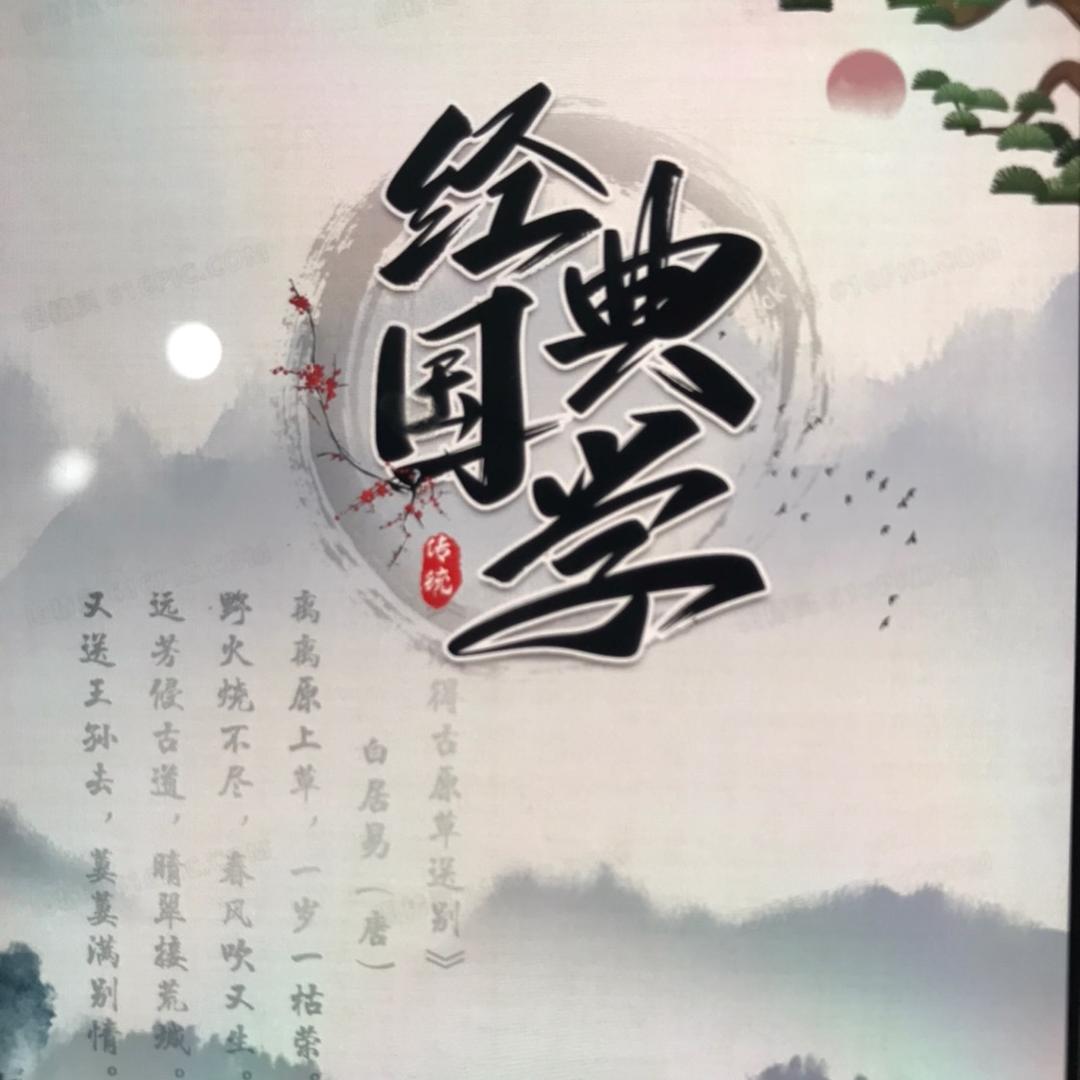 经典
国学
传统
得古原草送别》
白居易（唐）
离离原上草，一岁一枯荣。
野火烧不尽，春风吹又生。
远芳侵古道，晴翠接荒城。
又送王孙去，萋萋满别情。